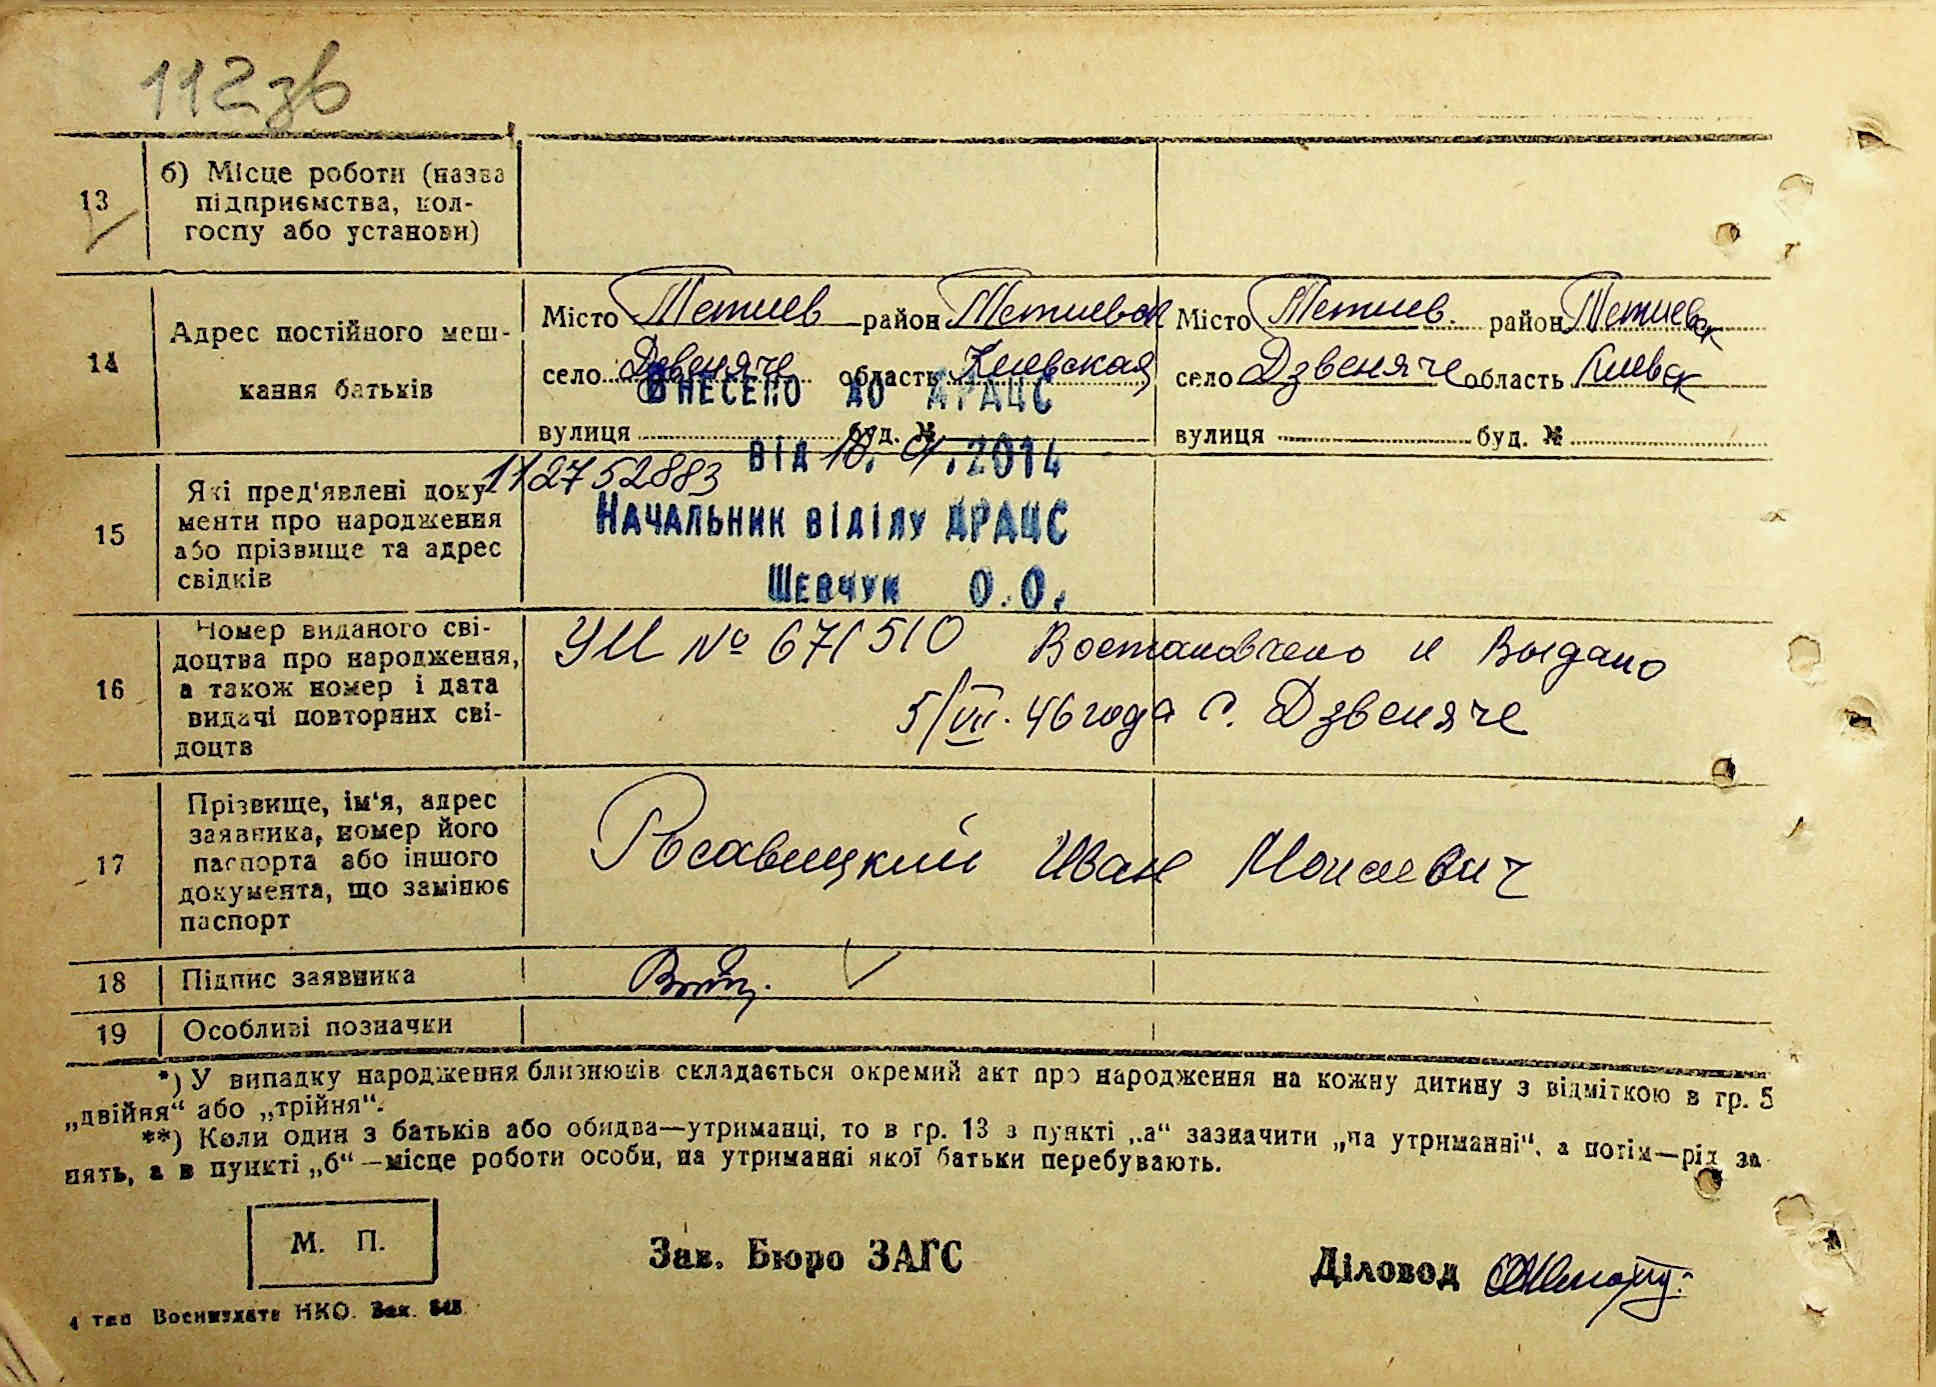 112зв
13
б) Місце роботи (назва
підприємства, кол-
госпу або установи)
14
Адрес постійного меш-
кання батьків
Місто Тетиев район Тетиевск
село Дзвеняче область Киевская
вулиця буд. №
Місто Тетиев. район Тетиевск
село Дзвеняче область Киевск
вулиця буд. №
Внесено до ДРАЦС
від 10. 01.2014
Начальник віділу ДРАЦС
Шевчук О.О.
112752883
15
Які пред'явлені доку-
менти про народження
або прізвище та адрес
свідків
16
Номер виданого сві-
доцтва про народження,
а також номер і дата
видачі повторних сві-
доцтв
УИ № 671510 Востановлено и Выдано
5/VII. 46 года с. Дзвеняче
17
Прізвище, ім'я, адрес
заявника, номер його
паспорта або іншого
документа, що замінює
паспорт
Росавицкий Иван Моисеевич
18
Підпис заявника
19
Особливі позначки
*) У випадку народження близнюків складається окремий акт про народження на кожну дитину з відміткою в гр. 5
„двійня“ або „трійня“.
**) Коли один з батьків або обидва—утриманці, то в гр. 13 в пункті „а“ зазначити „на утриманні“, а потім—рід за-
нять, а в пункті „б“—місце роботи особи, на утриманні якої батьки перебувають.
М. П.
Зав. Бюро ЗАГС
Діловод
4 тип Воениздата НКО. Зак. 848